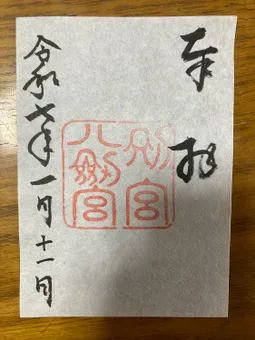 奉拝
別宮
八剣宮
令和七年一月十一日